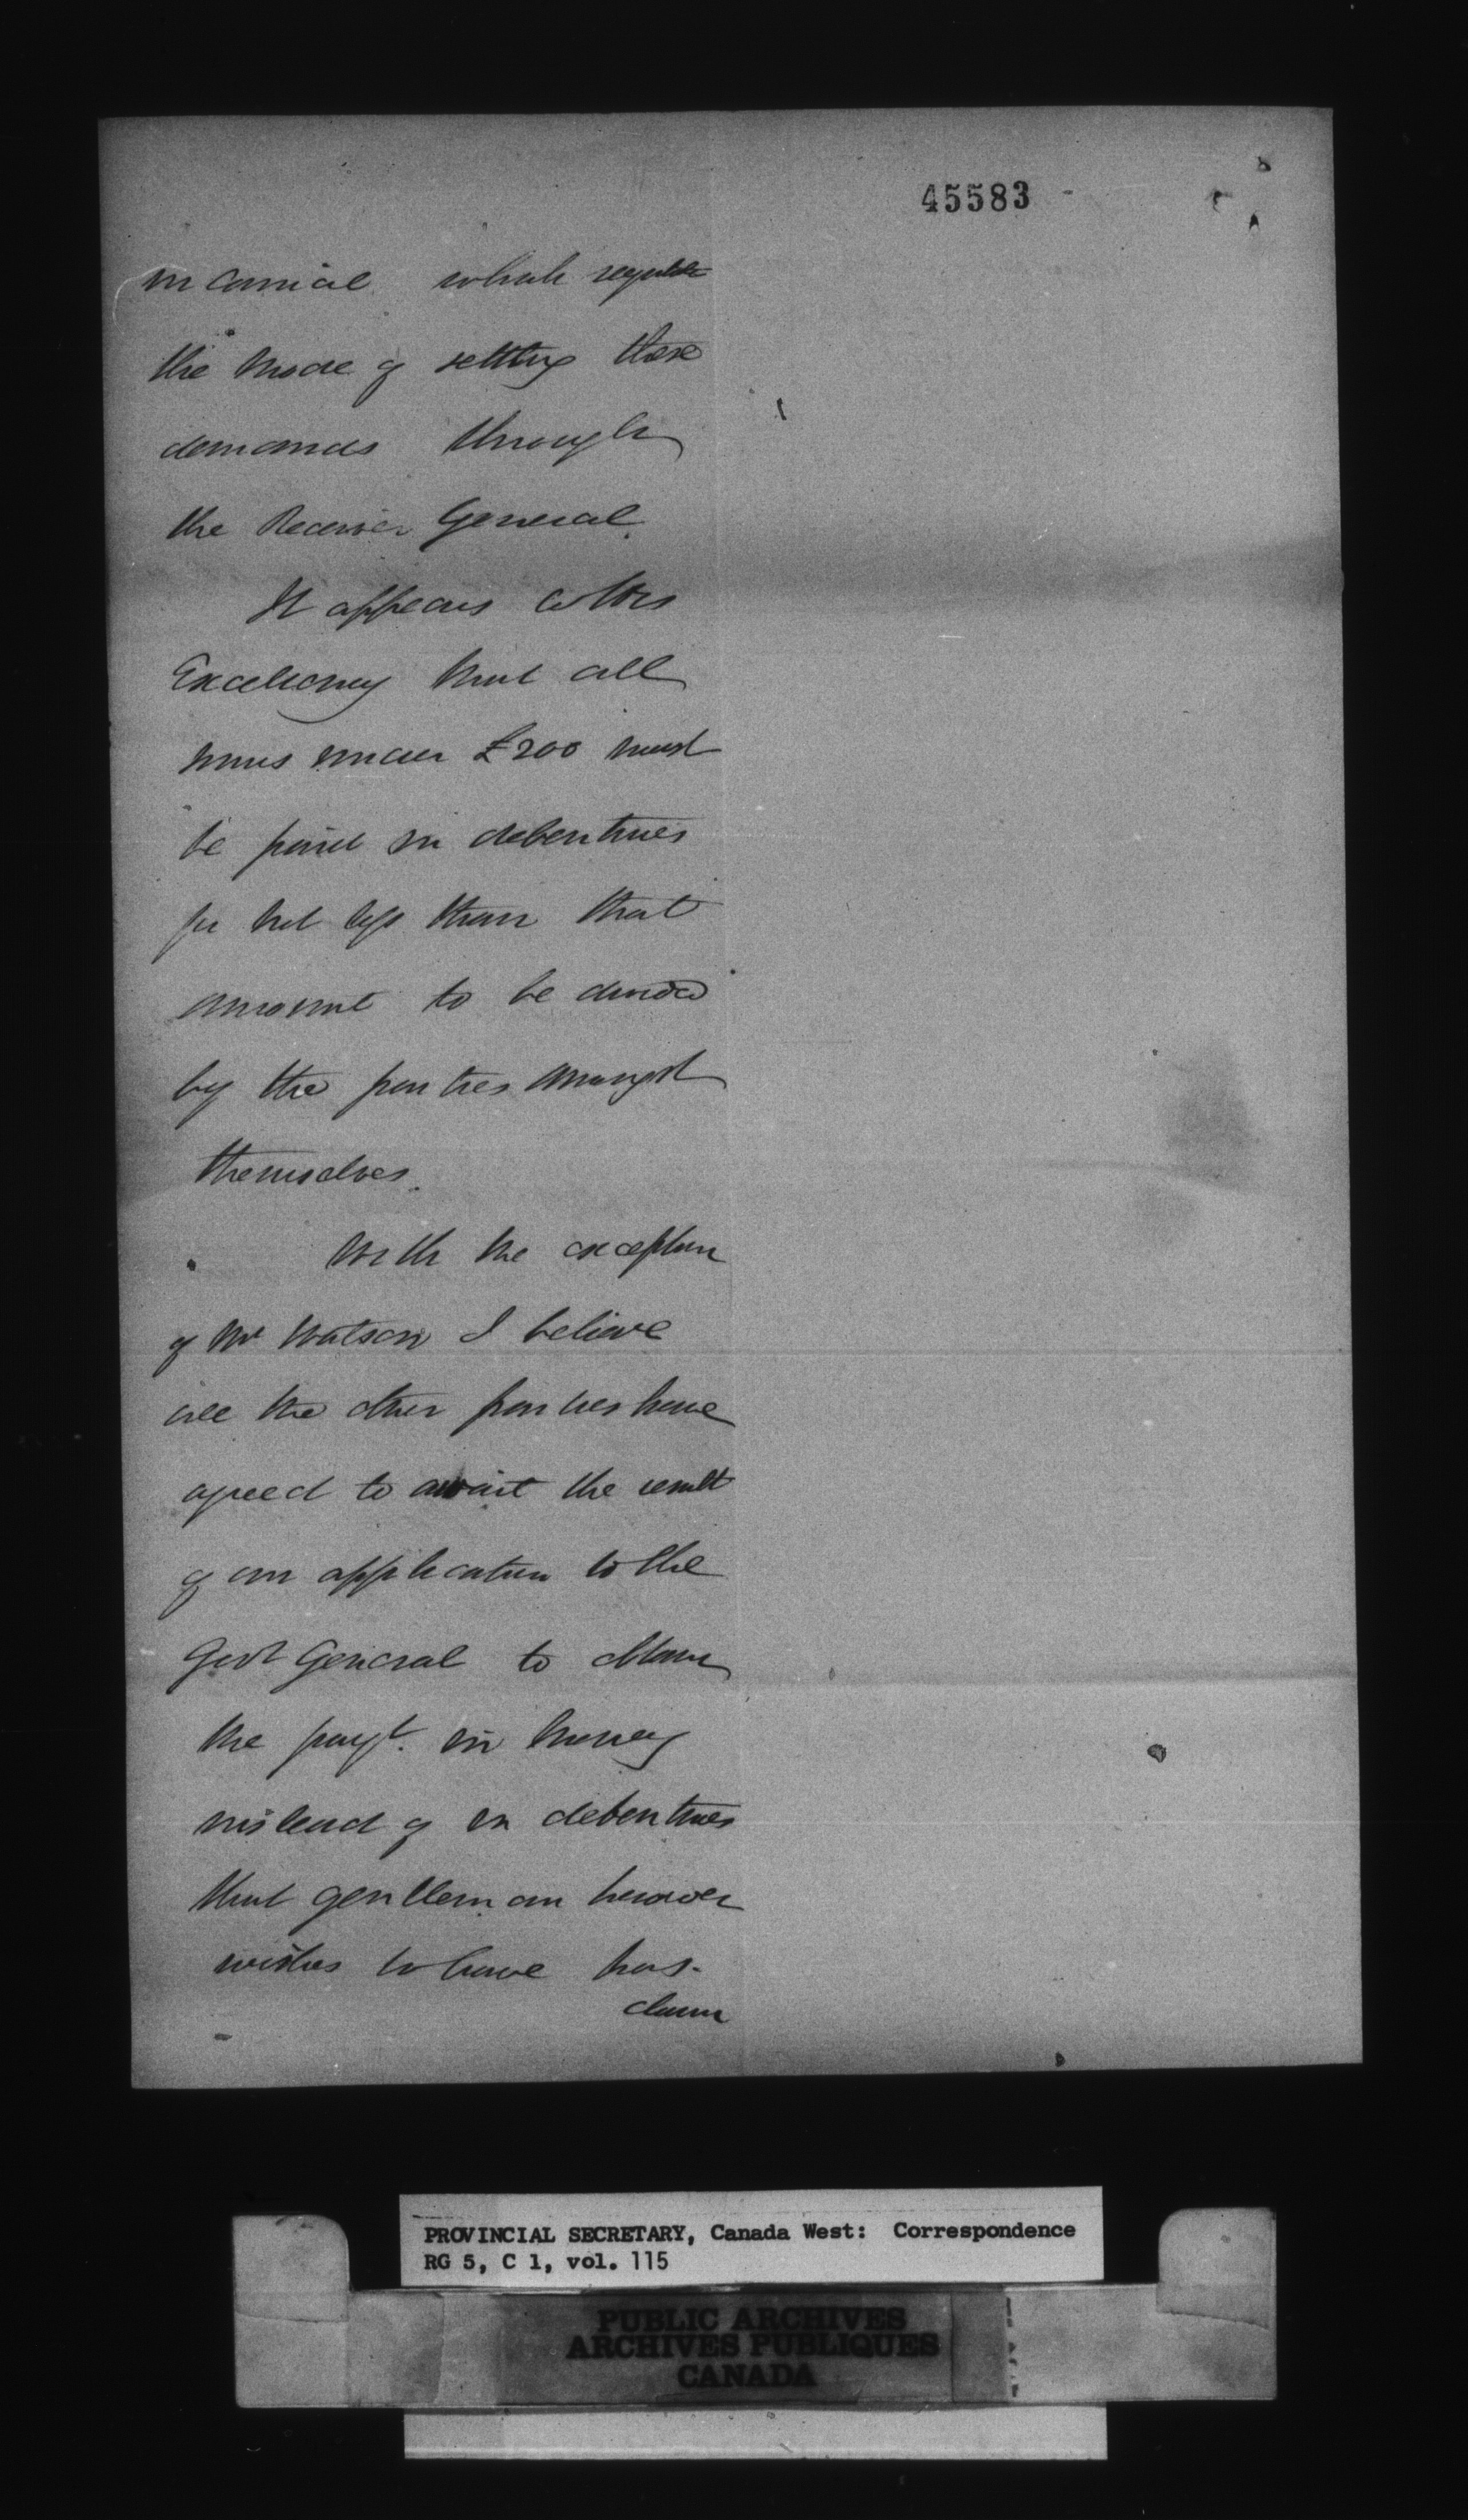 45583
in Council which regulate
the mode of settling these
demands through
the Receiver General.
It appears to His
Excellency that all
sums under £200 must
be paid in debentures
for not less than that
amount to be divided
by the parties amongst
themselves.
With the exception
of Mr Watson I believe
all the other parties have
agreed to await the result
of an application to the
Govr General to allow
the payt. in money
instead of in debentures
that gentleman however
wishes to have his
claim
PROVINCIAL SECRETARY, Canada West: Correspondence
RG 5, C 1, vol. 115
PUBLIC ARCHIVES
ARCHIVES PUBLIQUES
CANADA